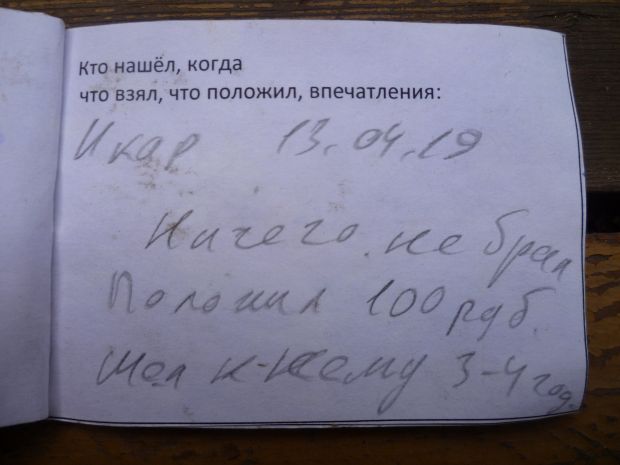 Кто нашёл, когда
что взял, что положил, впечатления:
Икар 13.04.19
Ничего не брал
Положил 100 руб.
Шел к нему 3-4 год.